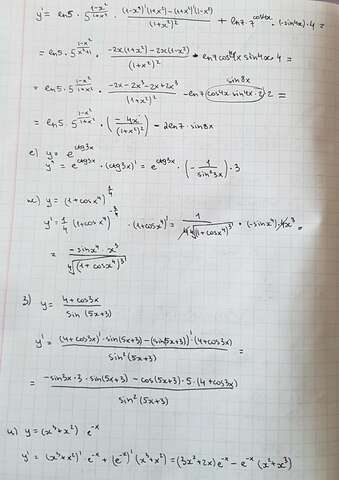 y' = ln5 · 5^((1-x²)/(1+x²)) · ((1-x²)'(1+x²)-(1+x²)'(1-x²))/(1+x²)² + ln7 · 7^(cos4x) · (-sin4x) · 4 =
= ln5 · 5^((1-x²)/(x²+1)) · (-2x(1+x²)-2x(1-x²))/(1+x²)² - ln7 cos4x sin4x · 4 =
= ln5 · 5^((1-x²)/(1+x²)) · (-2x-2x³-2x+2x³)/(1+x²)² - ln7 (cos4x · sin4x · 2) · 2 =
sin8x
= ln5 · 5^((1-x²)/(1+x²)) · (- 4x/(1+x²)²) - 2ln7 · sin8x
e) y = e^(ctg3x)
y' = e^(ctg3x) · (ctg3x)' = e^(ctg3x) · (- 1/(sin²3x)) · 3
ж) y = (1+cosx⁴)^(1/4)
y' = 1/4 (1+cosx⁴)^(-3/4) · (1+cosx⁴)' = 1/(4 ⁴√(1+cosx⁴)³) · (-sinx⁴) · 4x³ =
= (-sinx⁴ · x³)/(⁴√(1+cosx⁴)³)
3) y = (4+cos3x)/(sin(5x+3))
y' = ((4+cos3x)' · sin(5x+3) - (sin(5x+3))' · (4+cos3x))/(sin²(5x+3)) =
= (-sin3x · 3 · sin(5x+3) - cos(5x+3) · 5 · (4+cos3x))/(sin²(5x+3))
и) y = (x³+x²) e^(-x)
y' = (x³+x²)' e^(-x) + (e^(-x))' (x³+x²) = (3x²+2x) e^(-x) - e^(-x) (x²+x³)